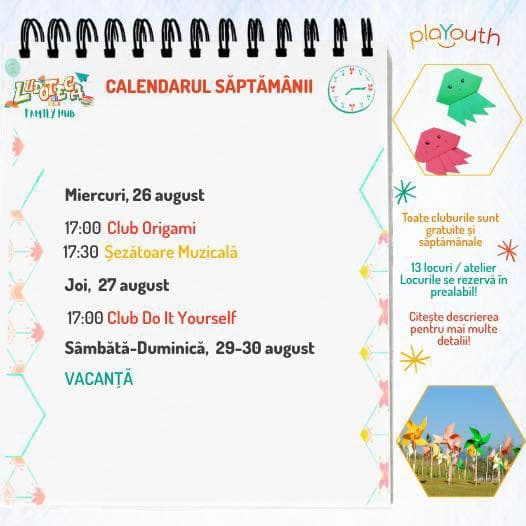 plaYouth
LUDOTECA
FAMILY HUB
CALENDARUL SĂPTĂMÂNII
Miercuri, 26 august
17:00 Club Origami
17:30 Șezătoare Muzicală
Joi, 27 august
17:00 Club Do It Yourself
Sâmbătă-Duminică, 29-30 august
VACANȚĂ
Toate cluburile sunt
gratuite și
săptămânale
13 locuri / atelier
Locurile se rezervă în
prealabil!
Citește descrierea
pentru mai multe
detalii!